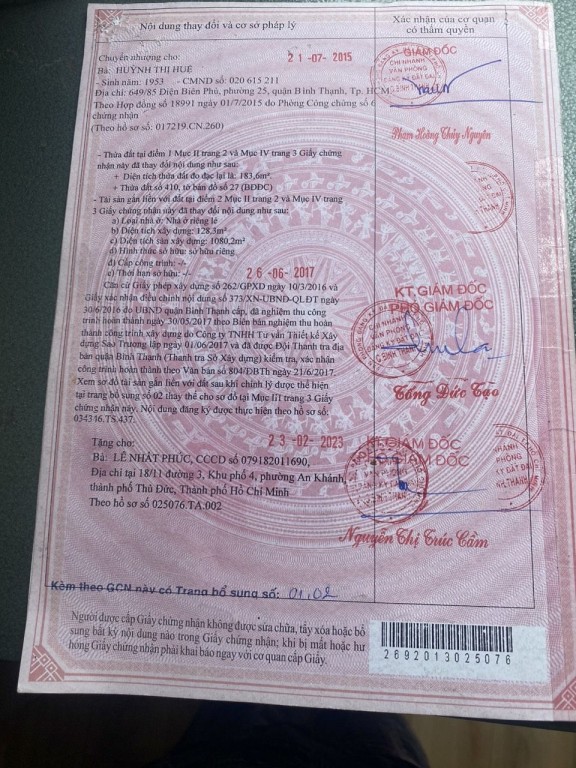 Nội dung thay đổi và cơ sở pháp lý
Xác nhận của cơ quan
có thẩm quyền
Chuyển nhượng cho:
21-07-2015
Bà: HUỲNH THỊ HUÊ
- Sinh năm: 1953 - CMND số: 020 615 211
Địa chỉ: 649/85 Điện Biên Phủ, phường 25, quận Bình Thạnh, Tp. HCM
Theo Hợp đồng số 18991 ngày 01/7/2015 do Phòng Công chứng số 6
chứng nhận
(Theo hồ sơ số: 017219.CN.260)
GIÁM ĐỐC
CHI NHÁNH
VĂN PHÒNG
ĐĂNG KÝ ĐẤT ĐAI
Phạm Hoàng Thúy Nguyên
- Thửa đất tại điểm 1 Mục II trang 2 và Mục IV trang 3 Giấy chứng
nhận này đã thay đổi nội dung như sau:
+ Diện tích thửa đất đo đạc lại là: 183,6m².
+ Thửa đất số 410, tờ bản đồ số 27 (BĐĐC)
- Tài sản gắn liền với đất tại điểm 2 Mục II trang 2 và Mục IV trang
3 Giấy chứng nhận này đã thay đổi nội dung như sau:
a) Loại nhà ở: Nhà ở riêng lẻ
b) Diện tích xây dựng: 128,3m²
c) Diện tích sàn xây dựng: 1080,2m²
d) Hình thức sở hữu: sở hữu riêng
đ) Cấp công trình: -/-
e) Thời hạn sở hữu: -/-
26-06-2017
Căn cứ Giấy phép xây dựng số 262/GPXD ngày 10/3/2016 và
Giấy xác nhận điều chỉnh nội dung số 373/XN-UBND-QLĐT ngày
30/6/2016 do UBND quận Bình Thạnh cấp, đã nghiệm thu công
trình hoàn thành ngày 30/05/2017 theo Biên bản nghiệm thu hoàn
thành công trình xây dựng do Công ty TNHH Tư vấn Thiết kế Xây
dựng Sao Trường lập ngày 01/06/2017 và đã được Đội Thanh tra địa
bàn quận Bình Thạnh (Thanh tra Sở Xây dựng) kiểm tra, xác nhận
công trình hoàn thành theo Văn bản số 804/ĐBTh ngày 21/6/2017.
Xem sơ đồ tài sản gắn liền với đất sau khi chỉnh lý được thể hiện
tại trang bổ sung số 02 thay thế cho sơ đồ tại Mục III trang 3 Giấy
chứng nhận này. Nội dung đăng ký được thực hiện theo hồ sơ số:
034346.TS.437.
KT.GIÁM ĐỐC
PHÓ GIÁM ĐỐC
CHI NHÁNH
VĂN PHÒNG
ĐĂNG KÝ ĐẤT ĐAI
Tống Đức Tạo
23-02-2023
Tặng cho:
Bà: LÊ NHẤT PHÚC, CCCD số 079182011690,
Địa chỉ tại 18/11 đường 3, Khu phố 4, phường An Khánh,
thành phố Thủ Đức, Thành phố Hồ Chí Minh
Theo hồ sơ số 025076.TA.002
KT.GIÁM ĐỐC
PHÓ GIÁM ĐỐC
Nguyễn Thị Trúc Cầm
Kèm theo GCN này có Trang bổ sung số: 01,02
Người được cấp Giấy chứng nhận không được sửa chữa, tẩy xóa hoặc bổ
sung bất kỳ nội dung nào trong Giấy chứng nhận; khi bị mất hoặc hư
hỏng Giấy chứng nhận phải khai báo ngay với cơ quan cấp Giấy.
2692013025076